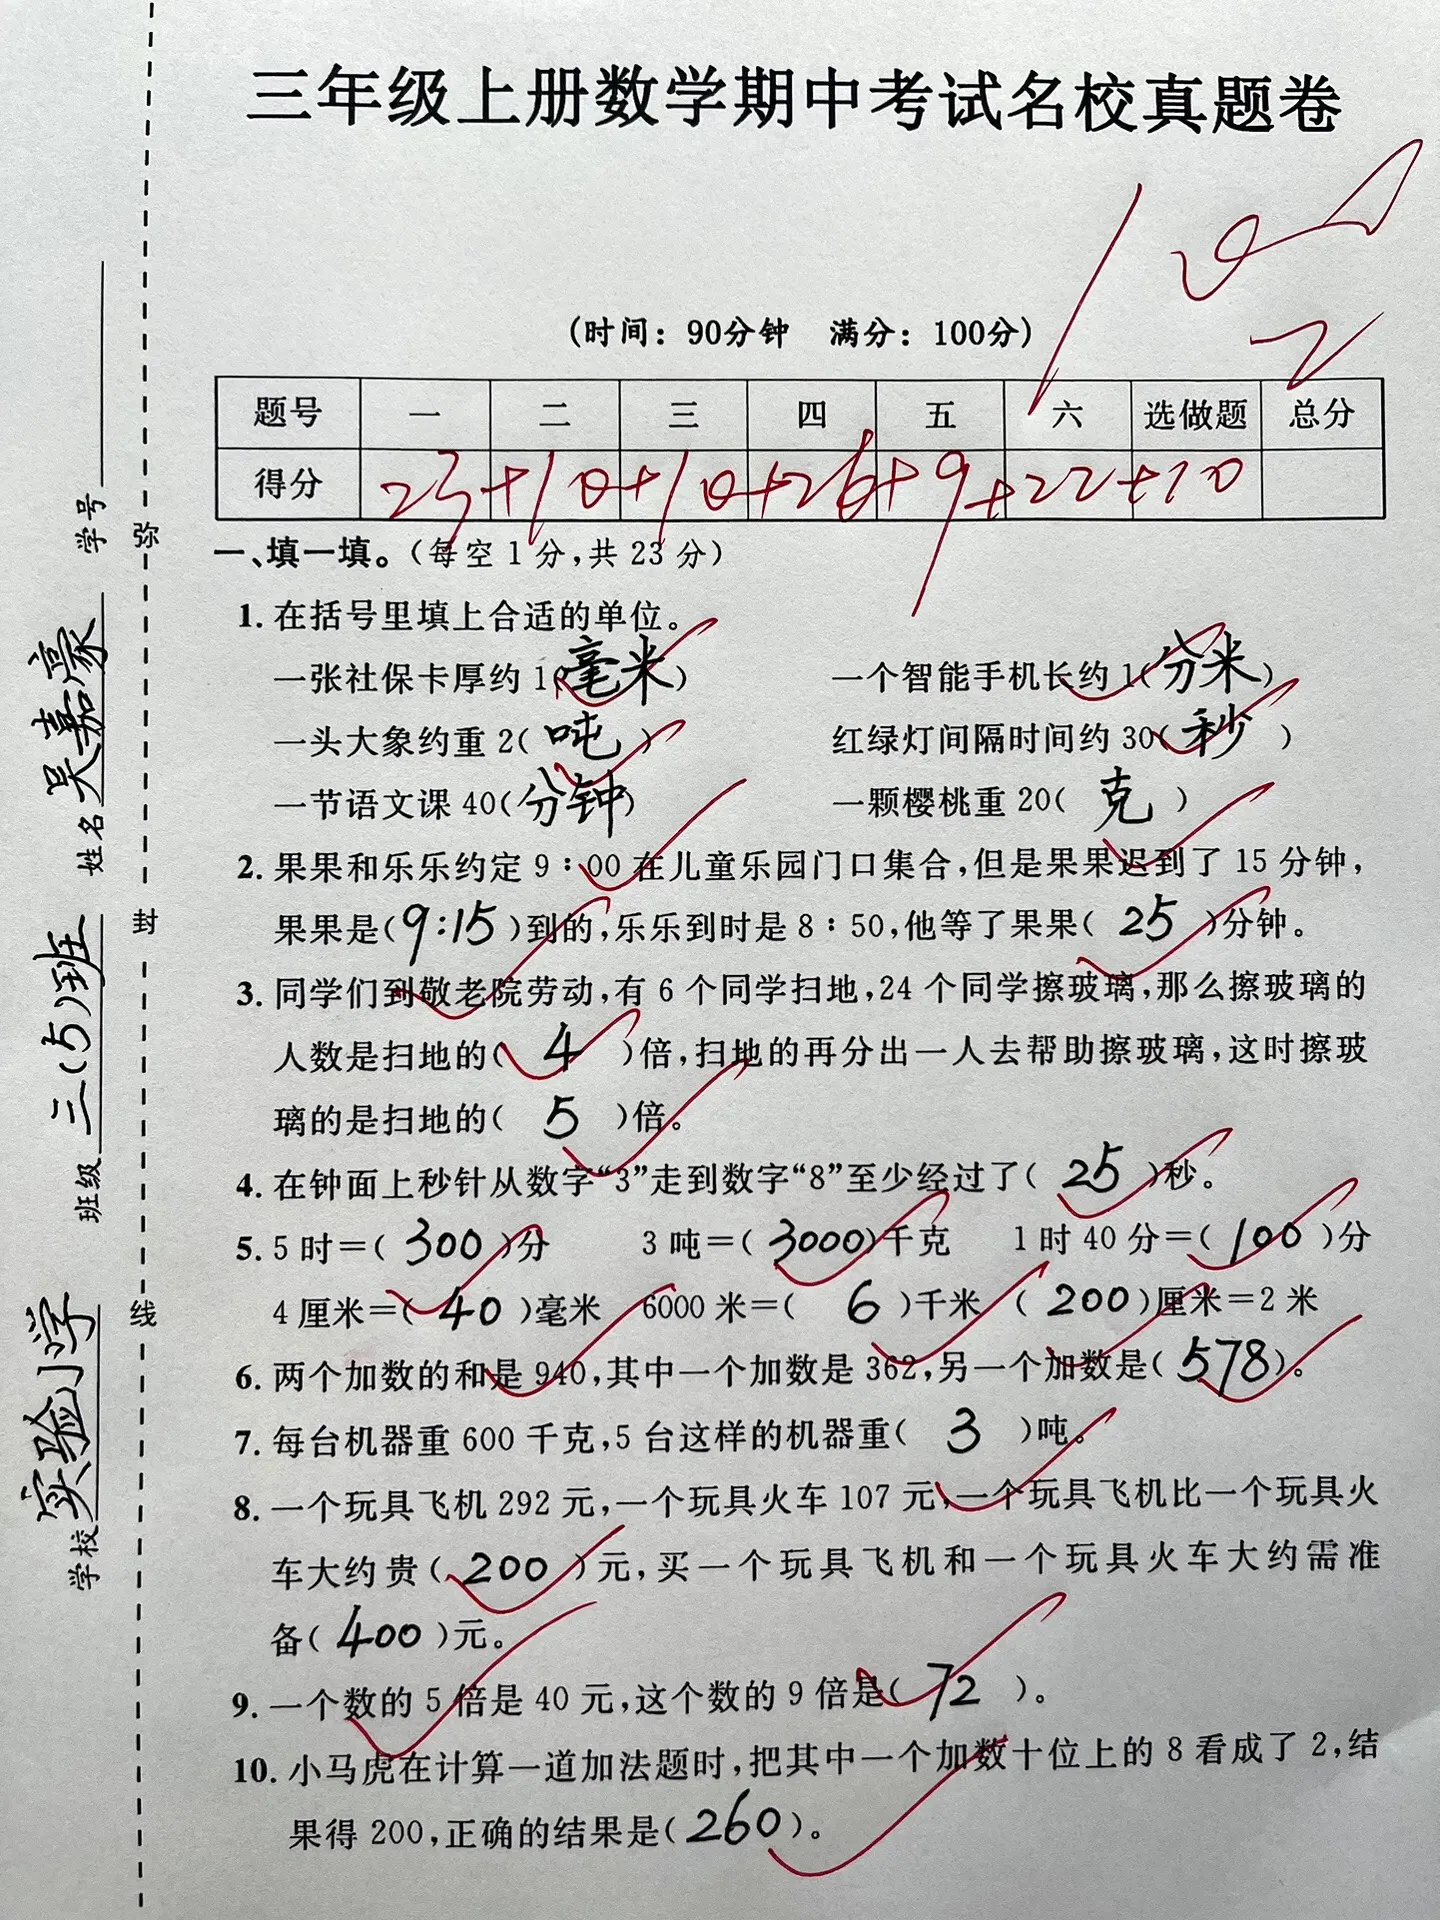 三年级上册数学期中考试名校真题卷
100
2
(时间：90分钟 满分：100分)
题号 一 二 三 四 五 六 选做题 总分
得分 23+10+10+26+9+22+10
一、填一填。(每空1分,共23分)
1. 在括号里填上合适的单位。
一张社保卡厚约1(毫米) 一个智能手机长约1(分米)
一头大象约重2(吨) 红绿灯间隔时间约30(秒)
一节语文课40(分钟) 一颗樱桃重20(克)
2. 果果和乐乐约定9：00在儿童乐园门口集合,但是果果迟到了15分钟,
果果是(9:15)到的,乐乐到时是8：50,他等了果果(25)分钟。
3. 同学们到敬老院劳动,有6个同学扫地,24个同学擦玻璃,那么擦玻璃的
人数是扫地的(4)倍,扫地的再分出一人去帮助擦玻璃,这时擦玻
璃的是扫地的(5)倍。
4. 在钟面上秒针从数字“3”走到数字“8”至少经过了(25)秒。
5. 5时=(300)分 3吨=(3000)千克 1时40分=(100)分
4厘米=(40)毫米 6000米=(6)千米 (200)厘米=2米
6. 两个加数的和是940,其中一个加数是362,另一个加数是(578)。
7. 每台机器重600千克,5台这样的机器重(3)吨。
8. 一个玩具飞机292元,一个玩具火车107元,一个玩具飞机比一个玩具火
车大约贵(200)元,买一个玩具飞机和一个玩具火车大约需准
备(400)元。
9. 一个数的5倍是40元,这个数的9倍是(72)。
10. 小马虎在计算一道加法题时,把其中一个加数十位上的8看成了2,结
果得200,正确的结果是(260)。
学校 实验小学 班级 三(5)班 姓名 吴嘉豪 学号
弥 封 线